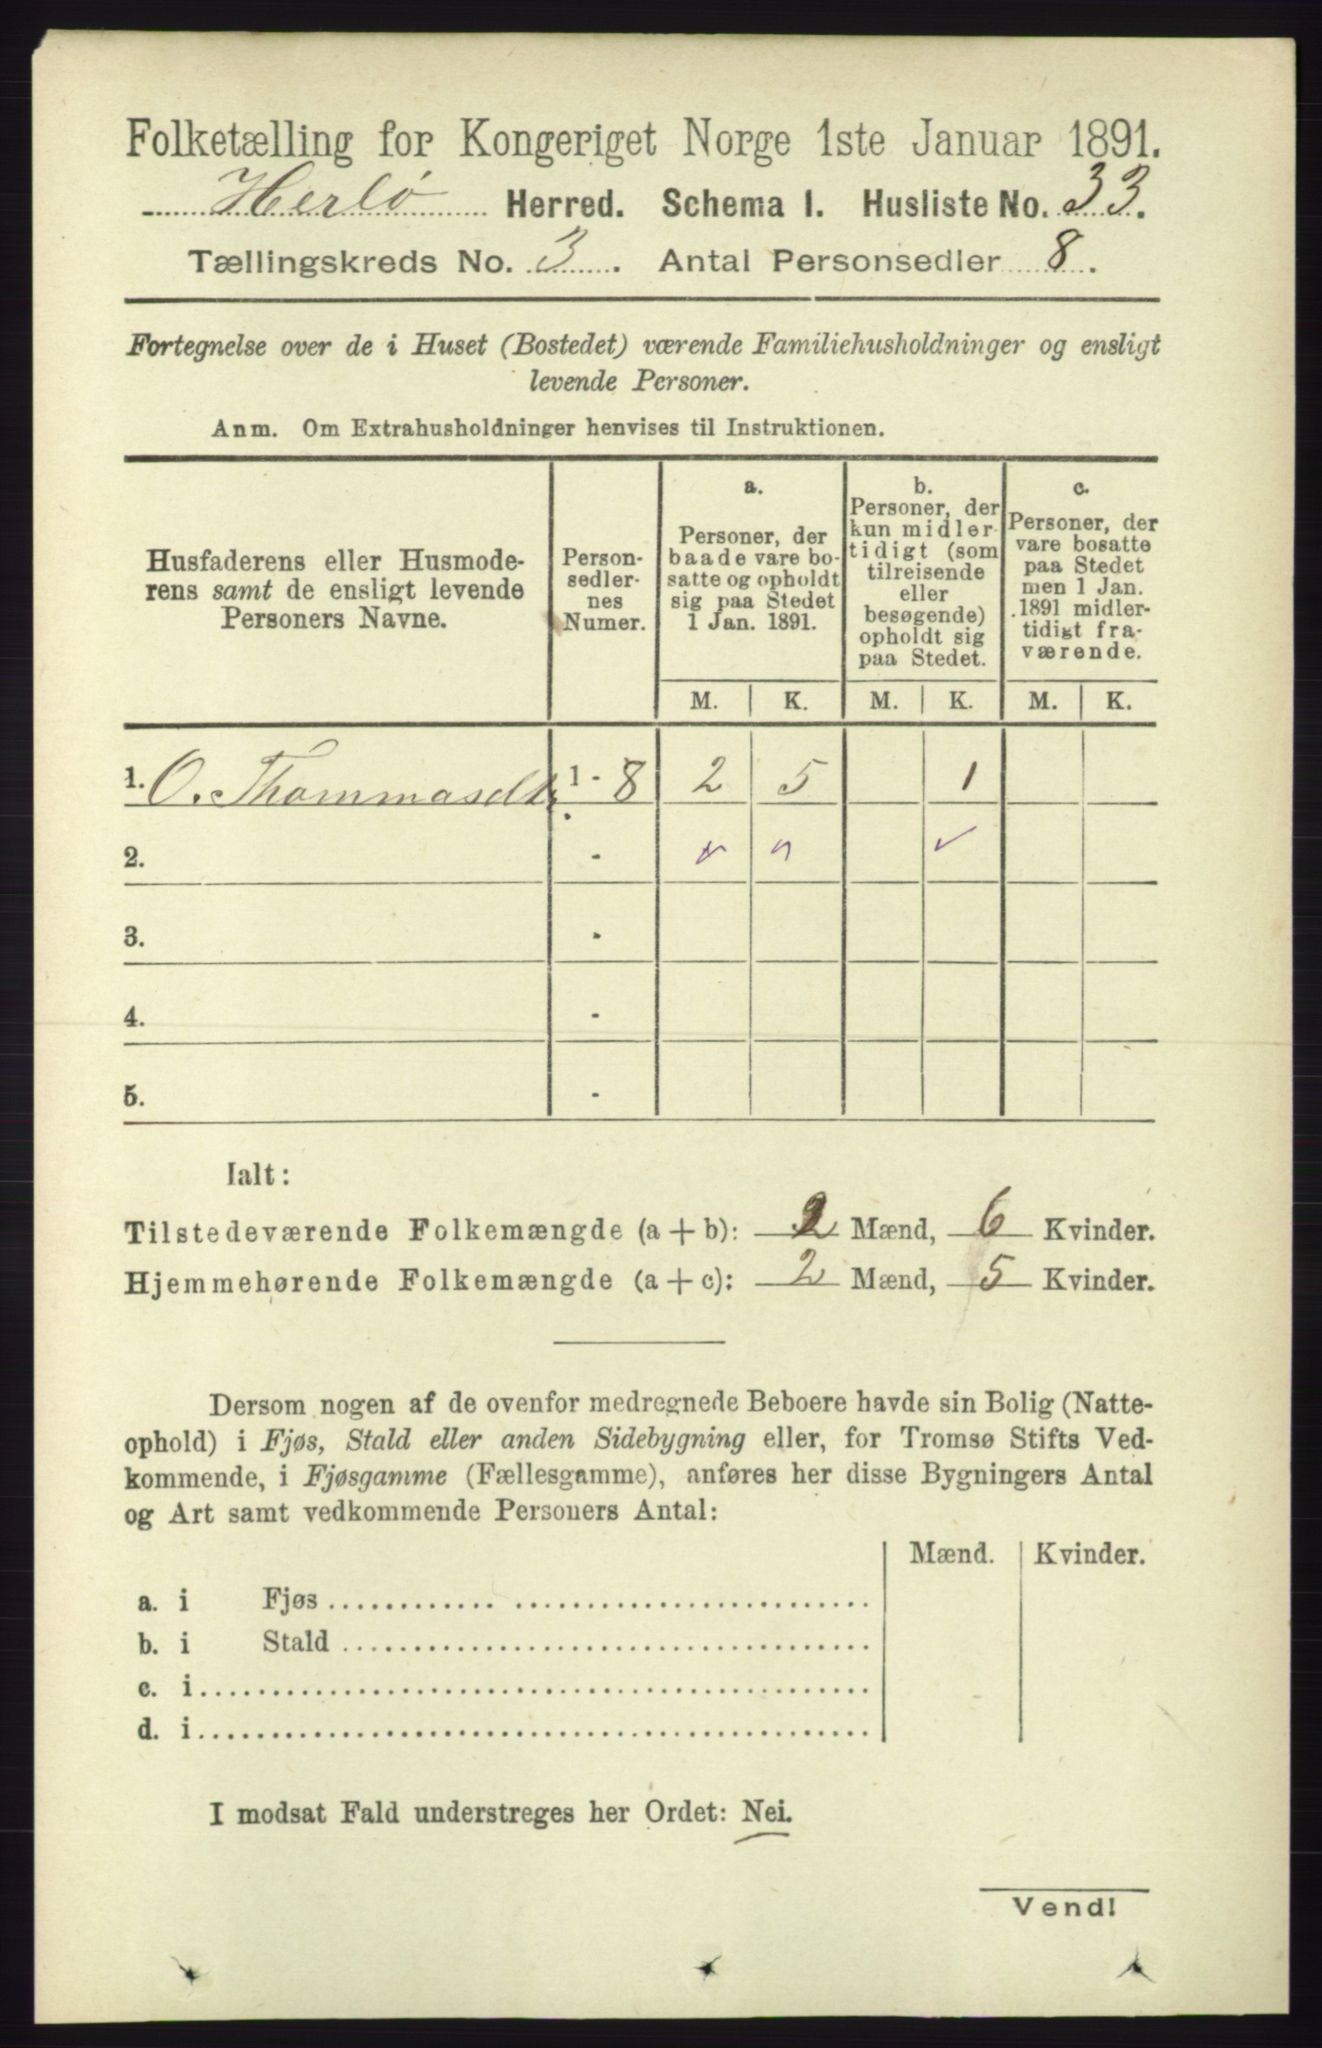 Folketælling for Kongeriget Norge 1ste Januar 1891.
Herlö Herred. Schema I. Husliste No. 33.
Tællingskreds No. 3. Antal Personsedler 8.
Fortegnelse over de i Huset (Bostedet) værende Familiehusholdninger og ensligt
levende Personer.
Anm. Om Extrahusholdninger henvises til Instruktionen.
Husfaderens eller Husmode-
rens samt de ensligt levende
Personers Navne.
Person-
sedler-
nes
Numer.
a.
Personer, der
baade vare bo-
satte og opholdt
sig paa Stedet
1 Jan. 1891.
b.
Personer, der
kun midler-
tidigt (som
tilreisende
eller
besøgende)
opholdt sig
paa Stedet.
c.
Personer, der
vare bosatte
paa Stedet
men 1 Jan.
1891 midler-
tidigt fra-
værende.
M. K. M. K. M. K.
1. O. 1 - 8 2 5 1
2. -
3. -
4. -
5. -
Ialt:
Tilstedeværende Folkemængde (a + b): 2 Mænd, 6 Kvinder.
Hjemmehørende Folkemængde (a + c): 2 Mænd, 5 Kvinder.
Dersom nogen af de ovenfor medregnede Beboere havde sin Bolig (Natte-
ophold) i Fjøs, Stald eller anden Sidebygning eller, for Tromsø Stifts Ved-
kommende, i Fjøsgamme (Fællesgamme), anføres her disse Bygningers Antal
og Art samt vedkommende Personers Antal:
Mænd. Kvinder.
a. i Fjøs
b. i Stald
c. i
d. i
I modsat Fald understreges her Ordet: Nei.
Vend!